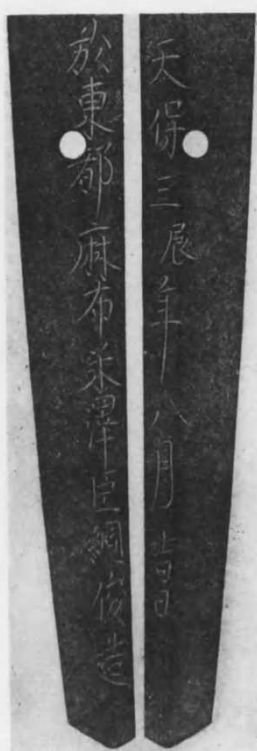 天保三辰年八月吉日
於東都麻布米澤臣綱俊造